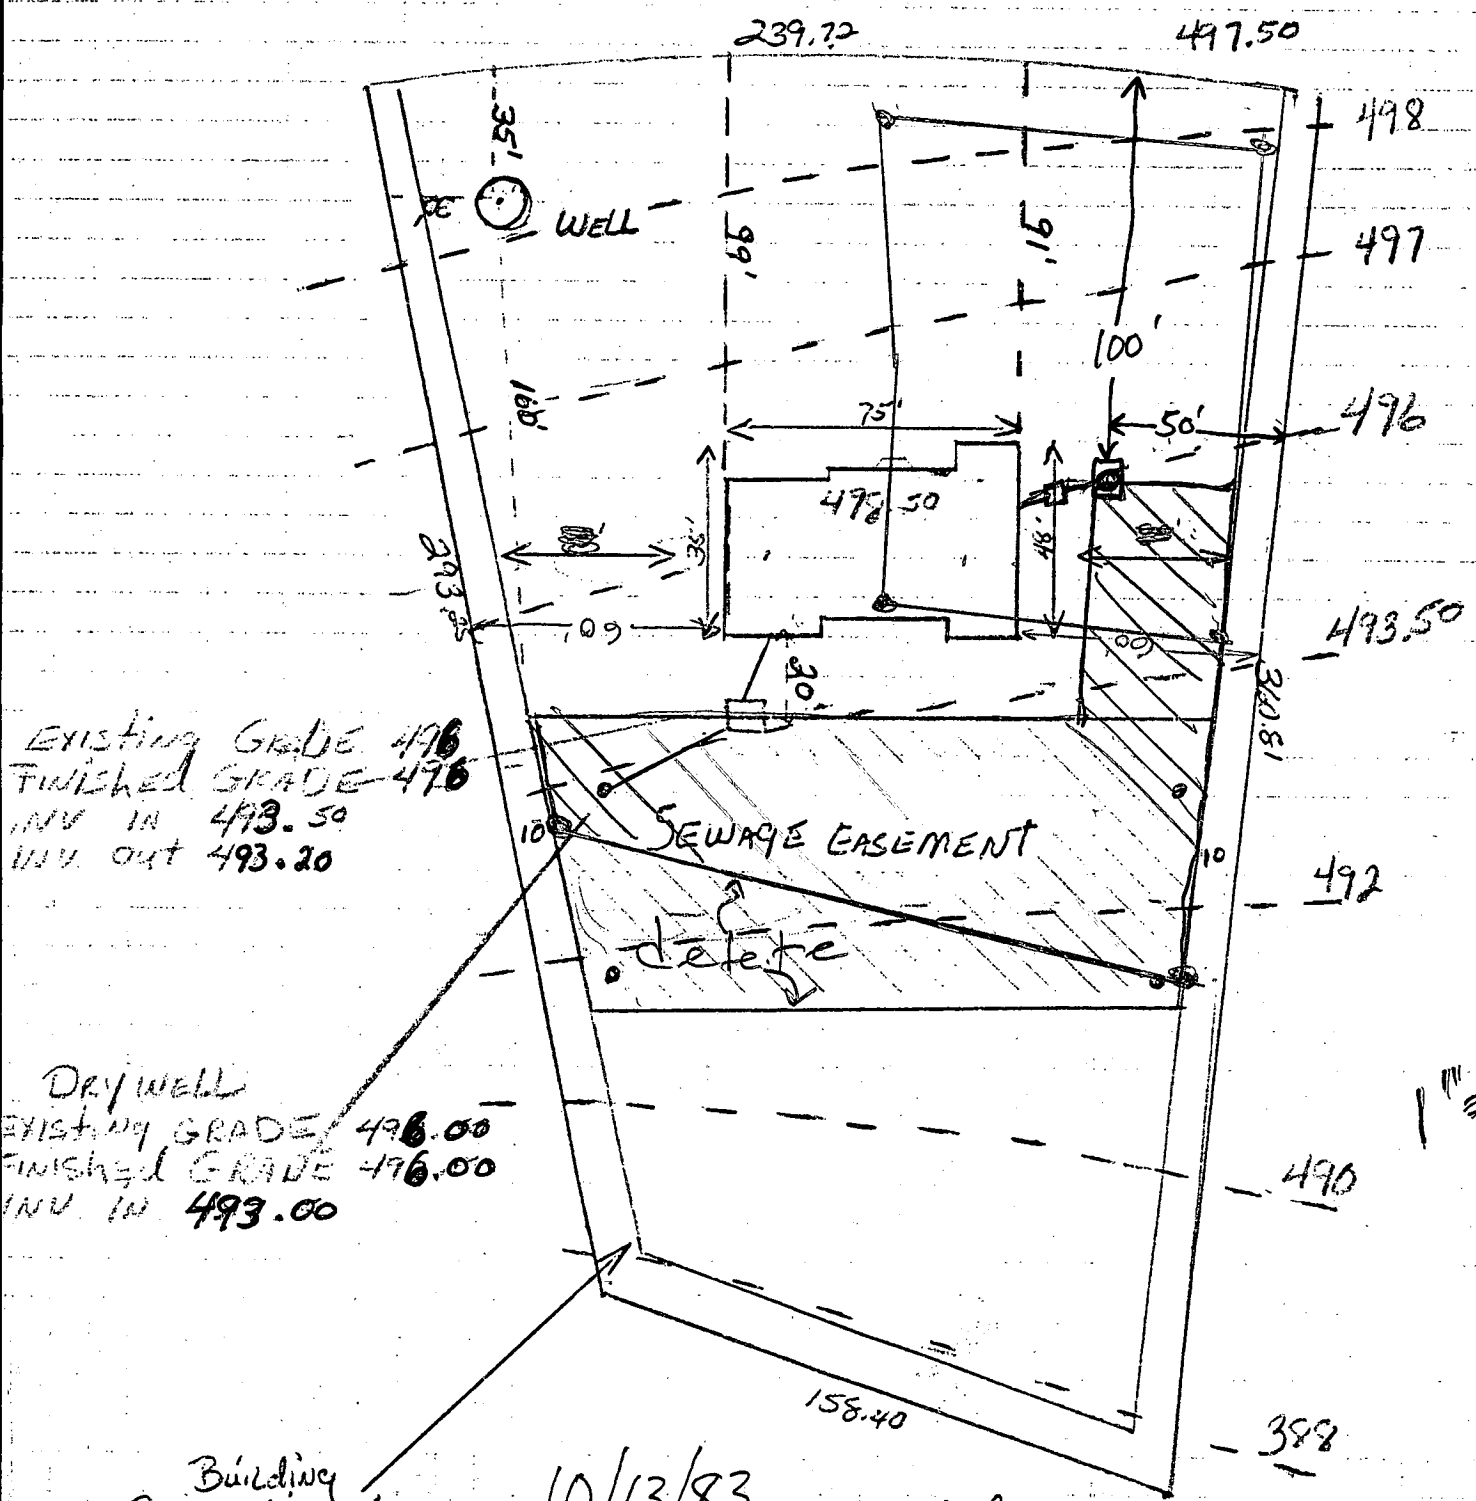 239.72
497.50
498
35'
30'
WELL
99'
91'
497
100'
160'
75'
50'
496
498.50
35'
48'
293.25
60'
60'
493.50
20'
310.81
EXISTING GRADE 496
FINISHED GRADE 496
INV IN 493.50
INV OUT 493.20
10
SEWAGE EASEMENT
10
492
delete
DRYWELL
EXISTING GRADE 496.00
FINISHED GRADE 496.00
INV IN 493.00
1"=
490
158.40
388
Building
10/13/83